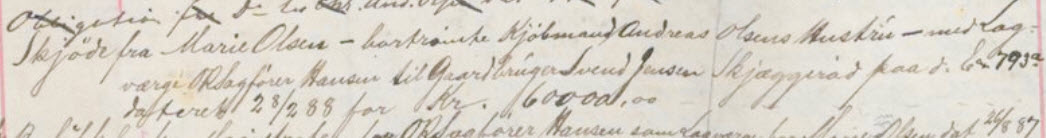 Obligation fra D. til Chr. And.
Skjöde fra Marie Olsen – bortrömte Kjöbmand Andreas Olsens Hustrü – med Lag-
værge ORSagförer Hansen til Gaardbrüger Svend Jensen Skjæggeröd paa d. E. 793a
dateret 28/2 88 for Kr. 60000,00
ORSagförer Hansen som Lagværge for Marie Olsen dat 24/8 87